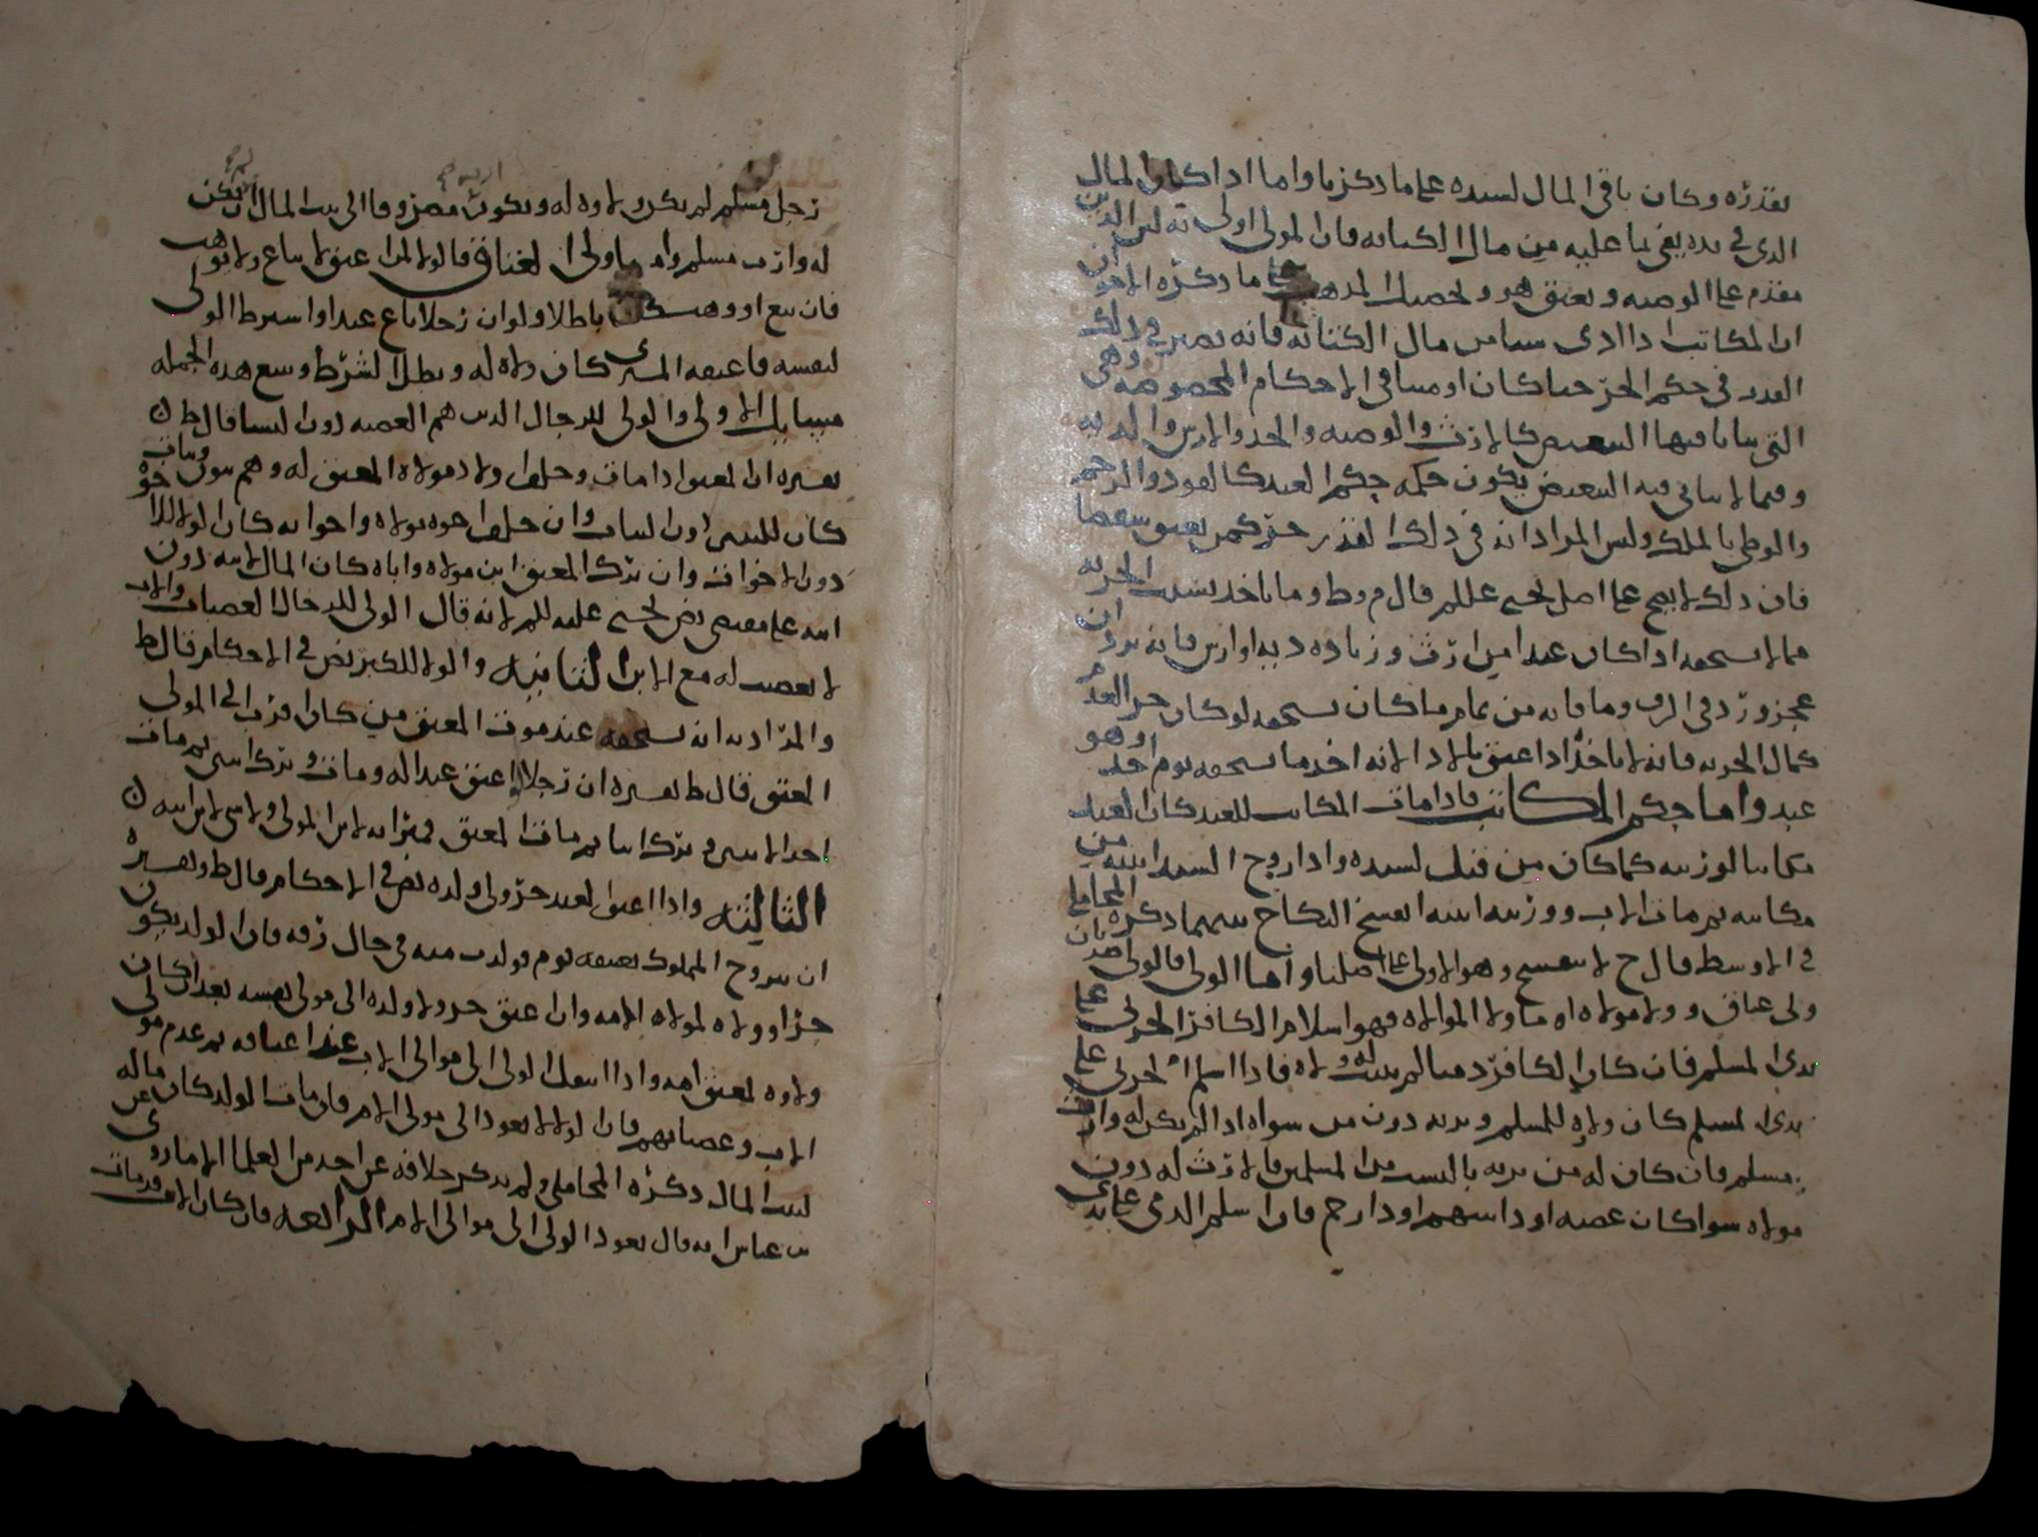 بقدره وكان باقي المال لسيده على ما ذكرنا واما اذا كان المال
الذي في يده يفي بما عليه من مال الكتابة فان المولى اولى به لان الدين
مقدم على الوصيه ويعتق هو وتحصيل المذهب على ما ذكره الاخوان
ان المكاتب اذا ادى شيا من مال الكتابة فانه يصير في ذلك
القدر في حكم الحر حيا كان او ميتا في الاحكام المخصوصه وهي
التي يتأتا فيها التبعيض كالارث والوصيه والحد والارش والديه
وفيما لا يتاتى فيه التبعيض يكون حكمه حكم العبد كالقود والرجم
والوطي بالملك وليس المراد انه في ذلك القدر حر كمن يعتق بعضه
فان ذلك لا يصح على اصل يحيى عليلم قال م وط وما ياخذ بسبب الحريه
مما لا يستحقه اذا كان عبدا من ارث وزيادة دية او ارش فانه يرد ان
عجز ورد في الرق وما فاته من تمام ما كان يستحقه لو كان حر العدم
كمال الحريه فانه لا ياخذ اذا اعتق بالاداء لانه اخذ ما يستحقه يوم اخذ وهو
عبد واما حكم المكاتب فاذا مات المكاتب للعبد كان العبد
مكاتبا لورثته كما كان من قبل لسيده واذا زوج السيد ابنته من
مكاتبه ثم مات الاب وورثته ابنته انفسخ النكاح بينهما ذكره المحاملي
في الاوسط قال ح لا ينفسخ وهو الاولى على اصلنا واما الولى فالولى ضربان
ولى عتاق وولا موالاه اما ولا الموالاه فهو اسلام الكافر الحربي على
يدي المسلم فان كان الكافر ذميا لم يثبت له ولاه فاذا اسلم الحربي على
يدي المسلم كان ولاه للمسلم ويرثه دون من سواه اذا لم يكن له وارث
مسلم فان كان له من يرثه بالنسب من المسلمين فالارث له دون
مولاه سوا كان عصبه او ذا سهم او ذا رحم فان اسلم الذمي على يدي
رجل مسلم لم يكن ولاوه له ويكون مصروفا الى بيت المال ان لم يكن
له وارث مسلم واما ولى العتاق فالولا لمن اعتق لا يباع ولا يوهب
فان بيع او وهب كان باطلا ولو ان رجلا باع عبدا واشترط الولى
لنفسه فاعتقه المشتري كان ولاه له وبطل الشرط وسع هذه الجمله
مسايل الاولى والولى للرجال الذين هم العصبه دون النسا قال ط
تفسيره ان المعتق اذا مات وخلف اولاد مولاه المعتق له وهم بنون وبنات
كان للبنين دون البنات وان خلف اخوة مولاه واخواته كان الولا للاخوة
دون الاخوات وان ترك المعتق ابن مولاه واباه كان المال لابنه دون
ابيه على مقتضى نص يحيى عليه السلم لانه قال الولى للرجال العصبات والاب
لا تعصيب له مع الابن الثانيه والولا للكبر نص في الاحكام قال ط
والمراد به انه يستحقه عند موت المعتق من كان اقرب الى المولى
المعتق قال ط تفسيره ان رجلا اعتق عبدا له ومات وترك ابنين ثم مات
احد الابنين وترك ابنا ثم مات المعتق فميراثه لابن المولى ولا شي لابن ابنه
الثالثه واذا اعتق العبد جر ولى ولده نص في الاحكام قال ط وتفسيره
ان يتزوج المملوك بعتيقه لقوم فولدت منه في حال رقه فان الولد يكون
حرا وولاه لمولاه الامه وان عتق جر ولا ولده الى مولى نفسه بعد ان كان
ولاوه لمعتق امه واذا انتقل الولى الى موالى الاب عند اعتاقه ثم عدم مولى
الاب وعصباتهم فان الولا لا يعود الى مولى الام فان مات الولد كان ماله
لبيت المال ذكره المحاملي ولم يذكر خلافه عن احد من العلما الا ما روي عن
بن عباس انه قال يعود الولى الى موالى الام الرابعه فان كان الاب قد مات